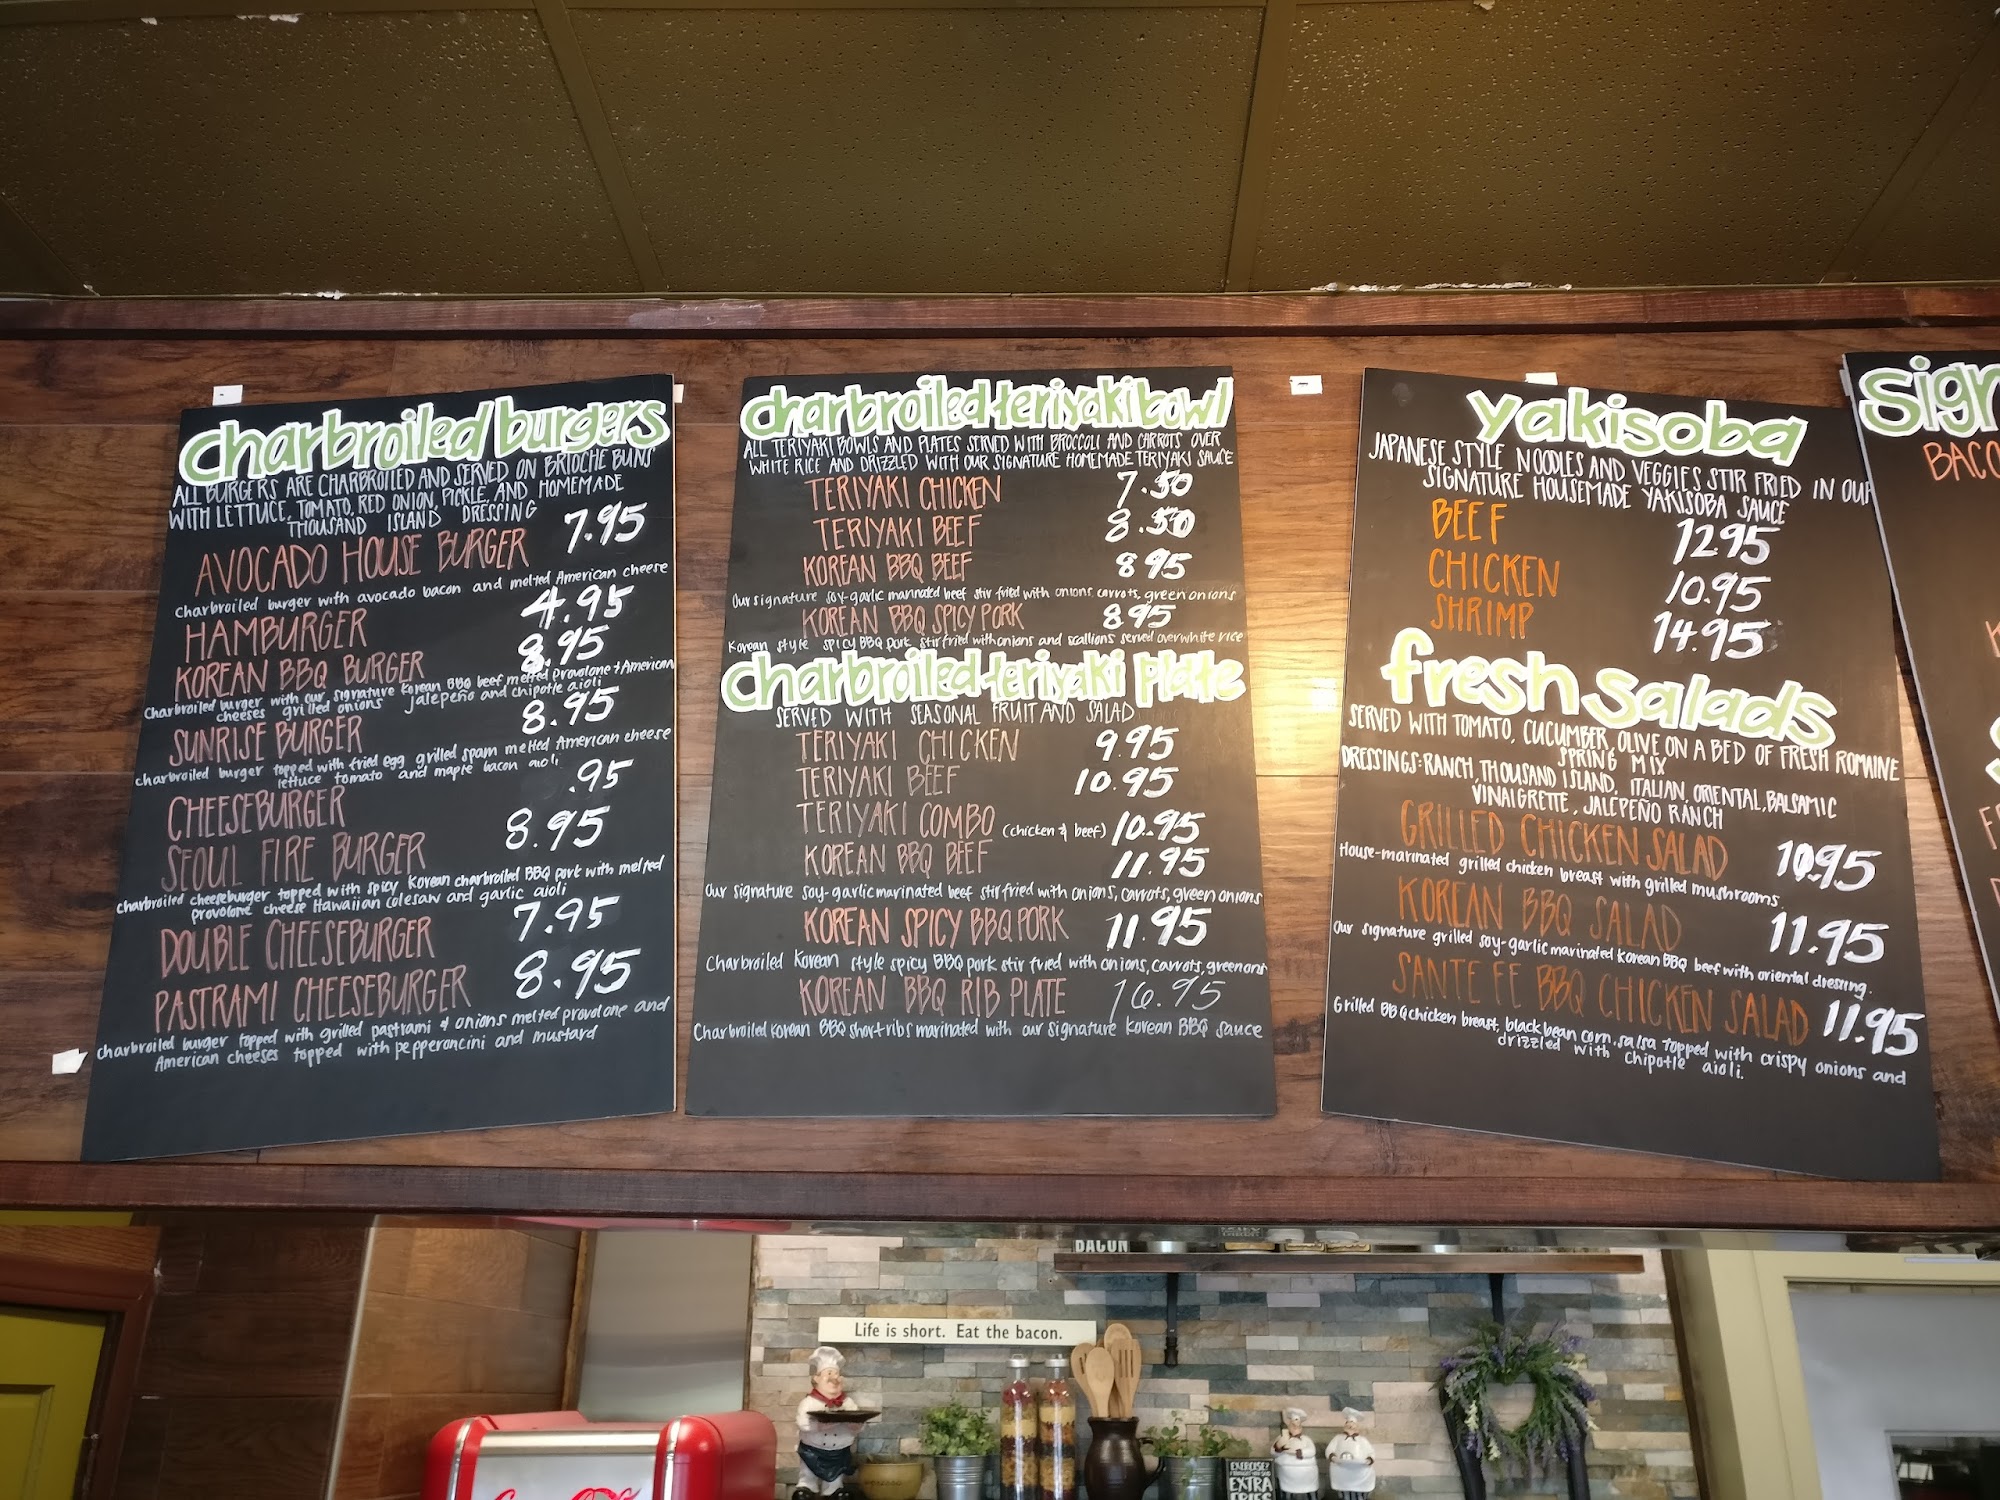 charbroiled burgers
ALL BURGERS ARE CHARBROILED AND SERVED ON BRIOCHE BUNS
WITH LETTUCE, TOMATO, RED ONION, PICKLE, AND HOMEMADE
THOUSAND ISLAND DRESSING
AVOCADO HOUSE BURGER 7.95
charbroiled burger with avocado bacon and melted American cheese
HAMBURGER 4.95
KOREAN BBQ BURGER 8.95
Charbroiled burger with our signature Korean BBQ beef melted provolone + American
cheeses grilled onions jalapeño and chipotle aioli
SUNRISE BURGER 8.95
charbroiled burger topped with fried egg grilled spam melted American cheese
lettuce tomato and maple bacon aioli
CHEESEBURGER .95
SEOUL FIRE BURGER 8.95
charbroiled cheeseburger topped with spicy Korean charbroiled BBQ pork with melted
provolone cheese Hawaiian colesaw and garlic aioli
DOUBLE CHEESEBURGER 7.95
PASTRAMI CHEESEBURGER 8.95
charbroiled burger topped with grilled pastrami & onions melted provolone and
American cheeses topped with pepperoncini and mustard
charbroiled teriyaki bowl
ALL TERIYAKI BOWLS AND PLATES SERVED WITH BROCCOLI AND CARROTS OVER
WHITE RICE AND DRIZZLED WITH OUR SIGNATURE HOMEMADE TERIYAKI SAUCE
TERIYAKI CHICKEN 7.50
TERIYAKI BEEF 8.50
KOREAN BBQ BEEF 8 95
Our signature soy-garlic marinated beef stir fried with onions carrots, green onions
KOREAN BBQ SPICY PORK 8.95
Korean style spicy BBQ pork stir fried with onions and scallions served over white rice
charbroiled teriyaki plate
SERVED WITH SEASONAL FRUIT AND SALAD
TERIYAKI CHICKEN 9.95
TERIYAKI BEEF 10.95
TERIYAKI COMBO (chicken & beef) 10.95
KOREAN BBQ BEEF 11.95
Our signature soy-garlic marinated beef stir fried with onions, carrots, green onions
KOREAN SPICY BBQ PORK 11.95
Charbroiled Korean style spicy BBQ pork stir fried with onions, carrots, green oni
KOREAN BBQ RIB PLATE 16.95
Charbroiled Korean BBQ short ribs marinated with our signature Korean BBQ sauce
yakisoba
JAPANESE STYLE NOODLES AND VEGGIES STIR FRIED IN OUR
SIGNATURE HOUSEMADE YAKISOBA SAUCE
BEEF 12.95
CHICKEN 10.95
SHRIMP 14.95
fresh salads
SERVED WITH TOMATO, CUCUMBER, OLIVE ON A BED OF FRESH ROMAINE
SPRING MIX
DRESSINGS: RANCH, THOUSAND ISLAND, ITALIAN, ORIENTAL, BALSAMIC
VINAIGRETTE, JALEPEÑO RANCH
GRILLED CHICKEN SALAD 10.95
House-marinated grilled chicken breast with grilled mushrooms.
KOREAN BBQ SALAD 11.95
Our signature grilled soy-garlic marinated Korean BBQ beef with oriental dressing.
SANTE FE BBQ CHICKEN SALAD 11.95
Grilled BBQ chicken breast, black bean corn salsa topped with crispy onions and
drizzled with chipotle aioli.
sign
BACO
BACON
Life is short. Eat the bacon.
EXERCISE?
I THOUGHT YOU SAID
EXTRA
FRIES